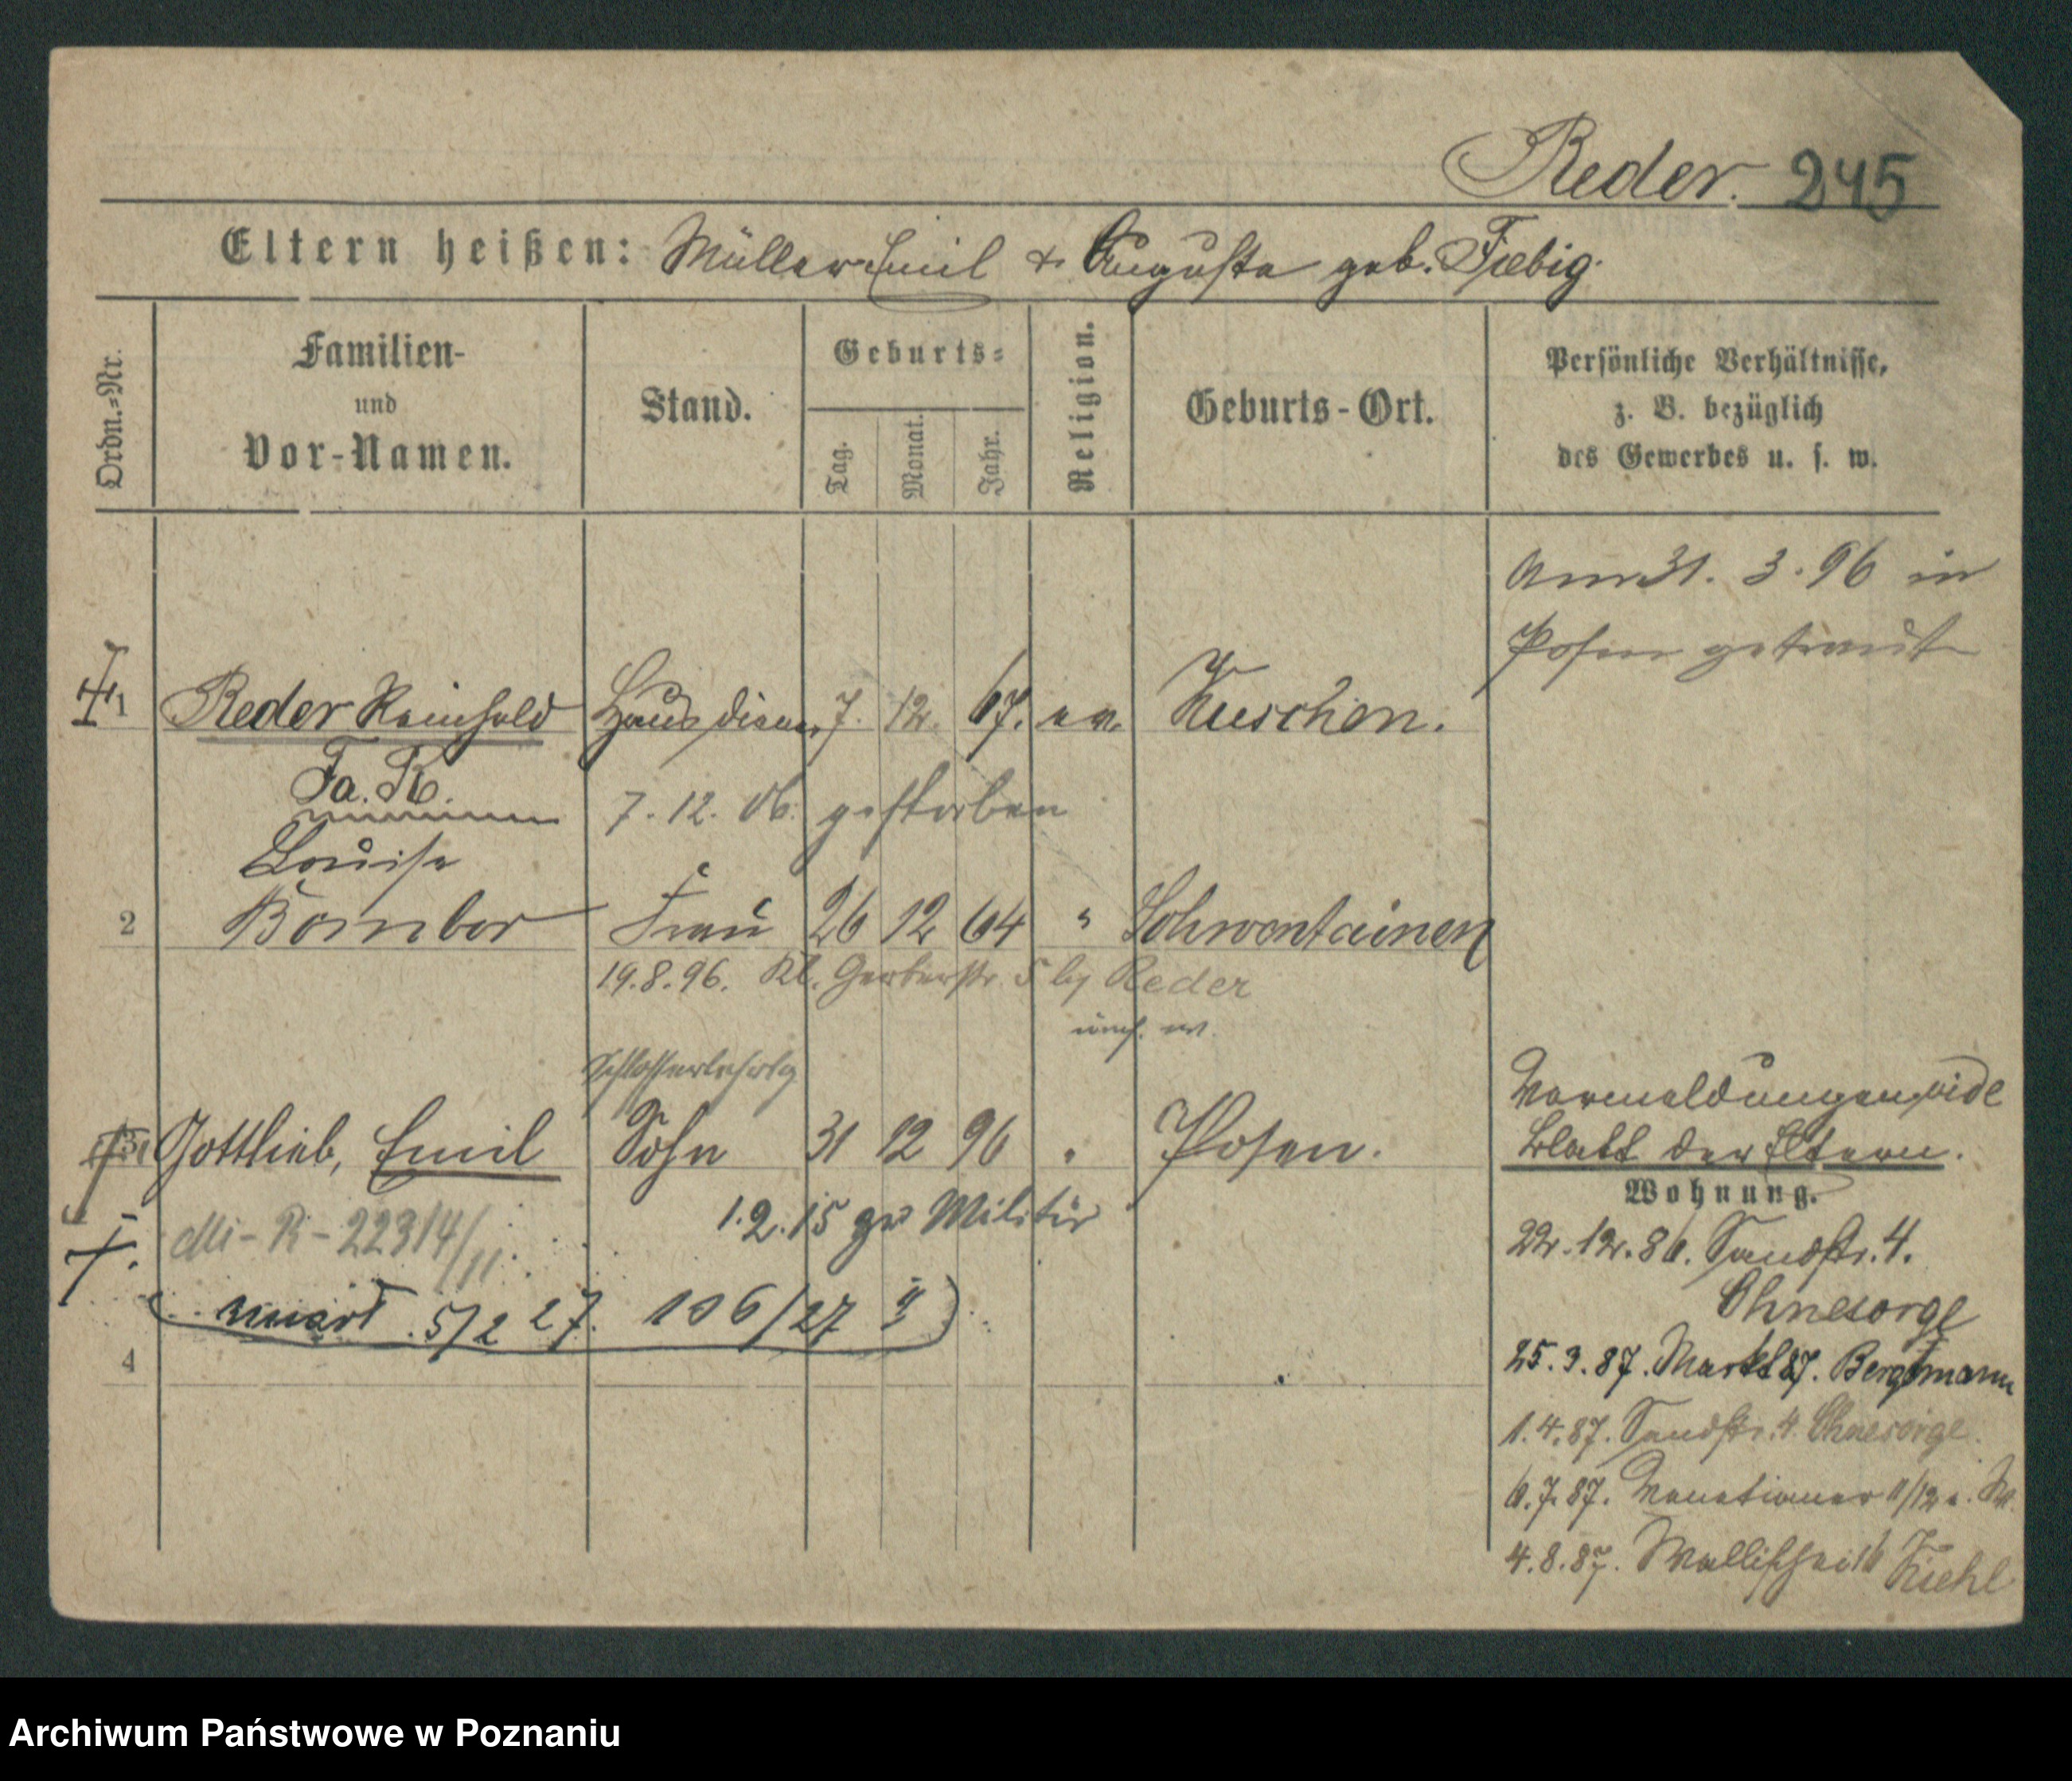 Reder. 245
Eltern heißen: Müller Emil & Auguste geb. Fiebig.
Ordn.-Nr.
Familien-
und
Vor-Namen.
Stand.
Geburts-
Tag.
Monat.
Jahr.
Religion.
Geburts-Ort.
Persönliche Verhältnisse,
z. B. bezüglich
des Gewerbes u. s. w.
Am 31. 3. 96 in
Posen getraut
1 Reder Reinhold Hausdiener 7. 12. 67. ev. Kuschen.
Fa. R.
7. 12. 06. gestorben
Louise
2 Bombor Frau 26 12 64 " Schwentainen
19. 8. 96. Kl. Gerberstr. 5 bei Reder
Schlosserlehrlg
Gottlieb, Emil Sohn 31 12 96 " Posen.
Vormeldungen vide
Blatt der Eltern.
Wohnung.
1. 2. 15 zu Militär
Mi-R-22314/11
22. 12. 86. Sandstr. 4.
Ohnesorge
5/2 27. 106/27 II)
25. 3. 87. Markt 87. Bergmann
4
1. 4. 87. Sandstr. 4 Ohnesorge.
6. 7. 87.
4. 8. 87. Wallischei 16 Kiehl
Archiwum Państwowe w Poznaniu